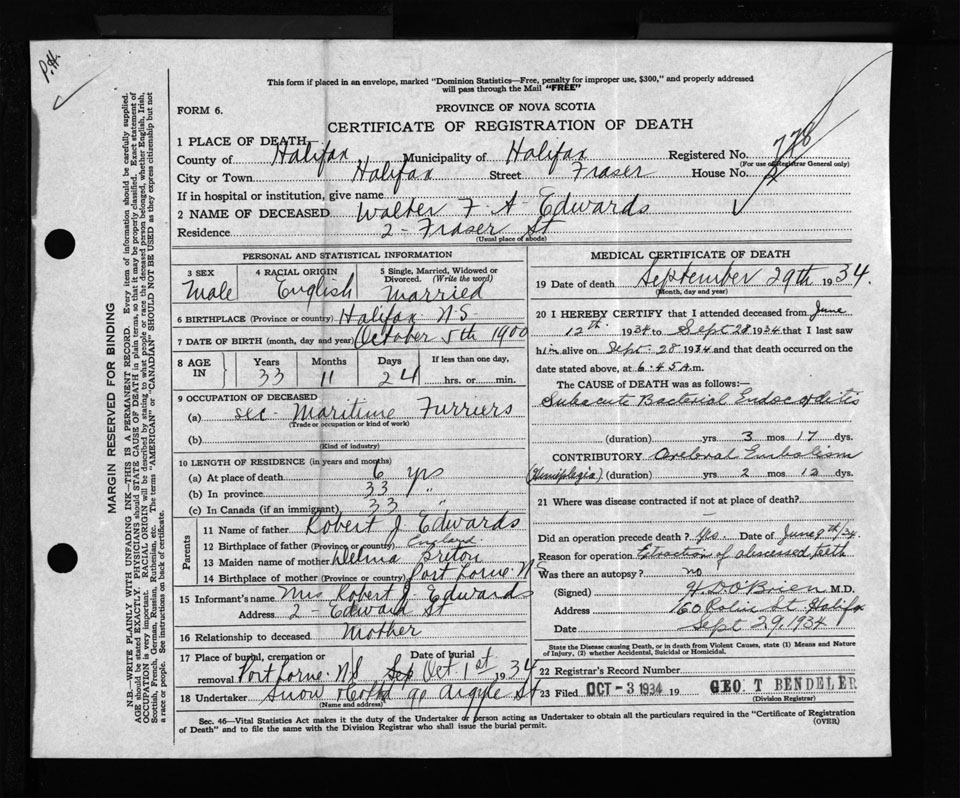 P.H.
This form if placed in an envelope, marked "Dominion Statistics—Free, penalty for improper use, $300," and properly addressed
will pass through the Mail "FREE"
FORM 6.
PROVINCE OF NOVA SCOTIA
CERTIFICATE OF REGISTRATION OF DEATH
1 PLACE OF DEATH
County of Halifax Municipality of Halifax Registered No. 778
(For use of Registrar General only)
City or Town Halifax Street Fraser House No. 2
If in hospital or institution, give name
2 NAME OF DECEASED Walter F. A. Edwards
Residence 2 - Fraser St
(Usual place of abode)
PERSONAL AND STATISTICAL INFORMATION
3 SEX Male
4 RACIAL ORIGIN English
5 Single, Married, Widowed or Divorced. (Write the word) Married
6 BIRTHPLACE (Province or country) Halifax N.S
7 DATE OF BIRTH (month, day and year) October 5th 1900
8 AGE IN Years 33 Months 11 Days 24 If less than one day, ......hrs. or ......min.
9 OCCUPATION OF DECEASED
(a) Sec. Maritime Furriers
(Trade or occupation or kind of work)
(b)
(Kind of industry)
10 LENGTH OF RESIDENCE (in years and months)
(a) At place of death 6 yrs
(b) In province 33 "
(c) In Canada (if an immigrant) 33 "
Parents
11 Name of father Robert J Edwards
12 Birthplace of father (Province or country) England
13 Maiden name of mother
14 Birthplace of mother (Province or country) Port Lorne N S
15 Informant's name Mrs Robert J. Edwards
Address 2 - Edward St
16 Relationship to deceased Mother
17 Place of burial, cremation or removal Port Lorne. N S
Date of burial Sep Oct 1st 1934
18 Undertaker Snow & Co Ltd 90 Argyle St
(Name and address)
MEDICAL CERTIFICATE OF DEATH
19 Date of death September 29th 1934.
(Month, day and year)
20 I HEREBY CERTIFY that I attended deceased from June
12th 1934, to Sept 28 1934 that I last saw
him alive on Sept. 28 1934 and that death occurred on the
date stated above, at 6.45 A.m.
The CAUSE OF DEATH was as follows:—
Subacute Bacterial Endocarditis
(duration) yrs 3 mos 17 dys.
CONTRIBUTORY Cerebral Embolism
(Hemiplegia) (duration) yrs 2 mos 12 dys.
21 Where was disease contracted if not at place of death? —
Did an operation precede death? Yes. Date of June 9th/34
Reason for operation Extraction of abscessed teeth
Was there an autopsy? no
(Signed) H D O'Brien M.D.
Address 160 Robie St. Halifax
Date Sept 29, 1934
State the Disease causing Death, or in death from Violent Causes, state (1) Means and Nature
of Injury, (2) whether Accidental, Suicidal or Homicidal.
22 Registrar's Record Number
23 Filed OCT - 3 1934 19 GEO. T BENDELER
(Division Registrar)
Sec. 46—Vital Statistics Act makes it the duty of the Undertaker or person acting as Undertaker to obtain all the particulars required in the "Certificate of Registration
of Death" and to file the same with the Division Registrar who shall issue the burial permit. (OVER)
MARGIN RESERVED FOR BINDING
N.B.—WRITE PLAINLY WITH UNFADING INK—THIS IS A PERMANENT RECORD. Every item of information should be carefully supplied.
AGE should be stated EXACTLY. PHYSICIANS should STATE CAUSE OF DEATH in plain terms, so that it may be properly classified. Exact statement of
OCCUPATION is very important. RACIAL ORIGIN will be described by stating to what people or race the deceased person belonged, whether English, Irish,
Scottish, French, German, Russian, Ruthenian, etc. The terms "AMERICAN" or "CANADIAN" SHOULD NOT BE USED as they express citizenship but not
a race or people. See instructions on back of certificate.